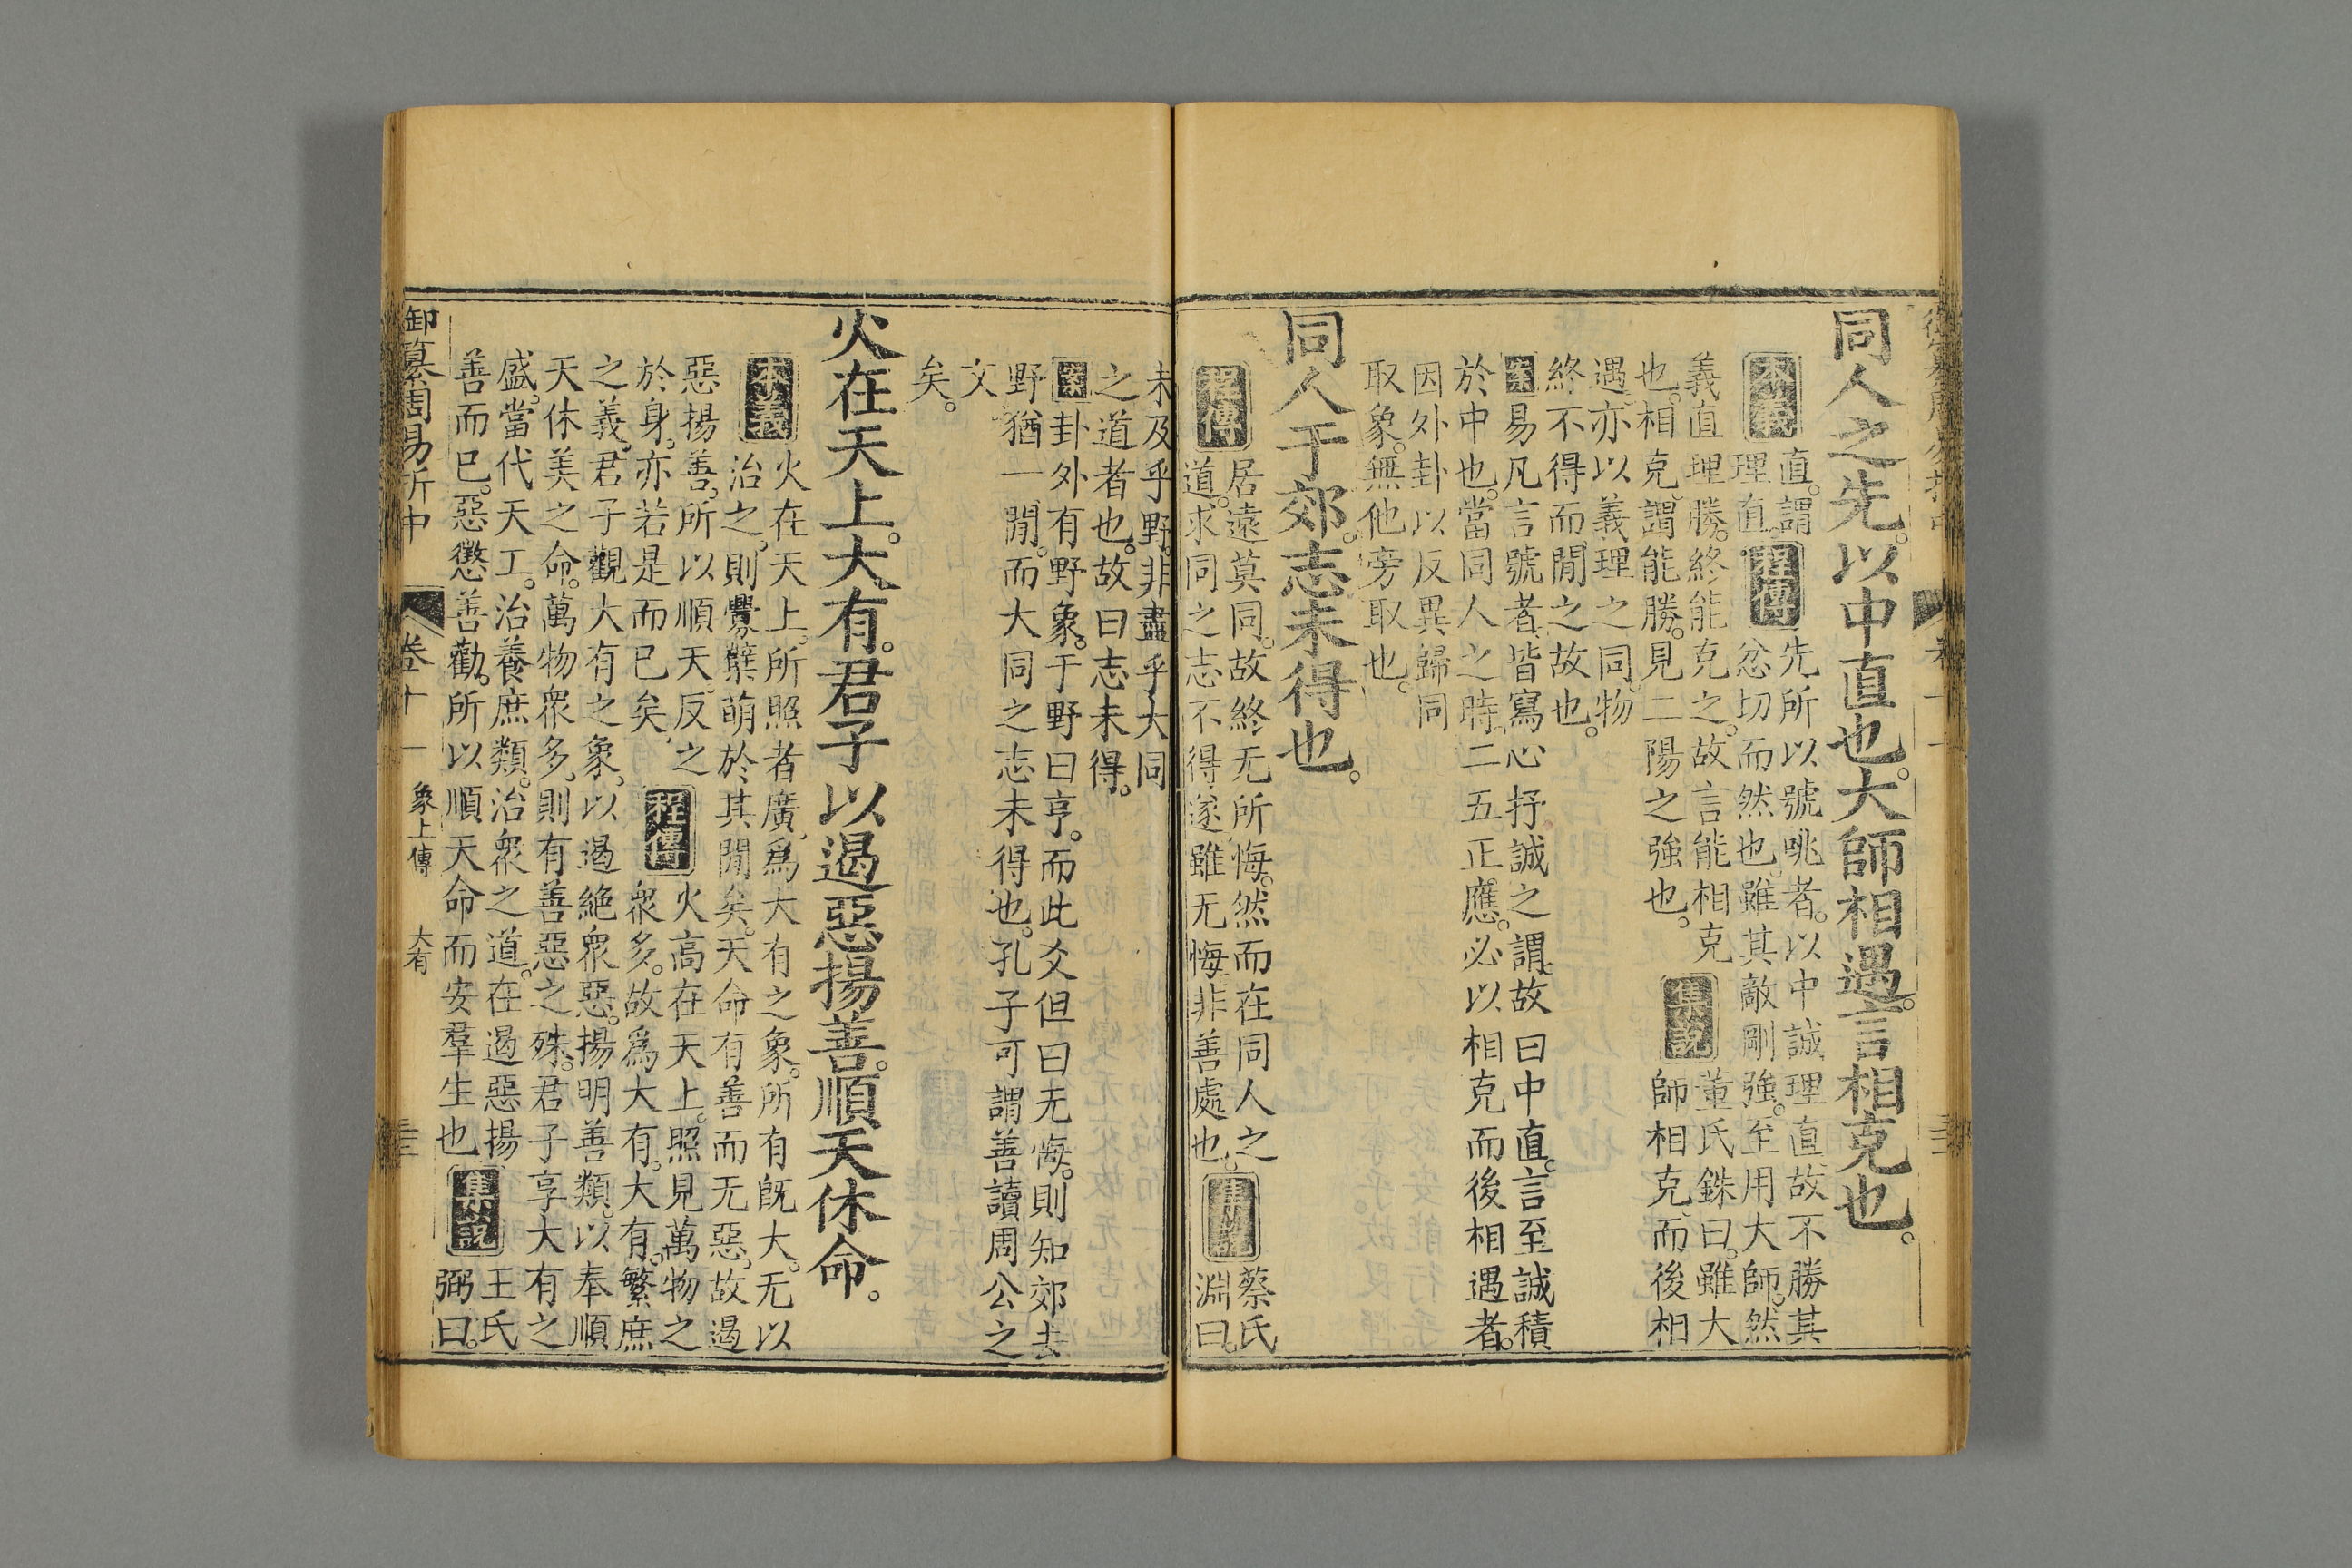 同人之先。以中直也。大師相遇。言相克也。
本義
直。謂
理直。
程傳
先所以號咷者。以中誠理直。故不勝其
忿切而然也。雖其敵剛強。至用大師。然
義直理勝。終能克之。故言能相克
也。相克。謂能勝。見二陽之強也。
集說
董氏銖曰。雖大
師相克。而後相
遇。亦以義理之同。物
終不得而閒之故也。
案易凡言號者。皆寫心抒誠之謂。故曰中直。言至誠積
於中也。當同人之時。二五正應。必以相克而後相遇者。
因外卦以反異歸同
取象。無他旁取也。
同人于郊。志未得也。
程傳
居遠莫同。故終无所悔。然而在同人之
道。求同之志不得遂。雖无悔。非善處也。
集說
蔡氏
淵曰。
未及乎野。非盡乎大同
之道者也。故曰志未得。
案卦外有野象。于野曰亨。而此爻但曰无悔。則知郊去
野猶一閒。而大同之志未得也。孔子可謂善讀周公之
文
矣。
火在天上。大有。君子以遏惡揚善。順天休命。
本義
火在天上。所照者廣。爲大有之象。所有旣大。无以
治之。則釁孽萌於其閒矣。天命有善而无惡。故遏
惡揚善。所以順天。反之
於身。亦若是而已矣。
程傳
火高在天上。照見萬物之
衆多。故爲大有。大有。繁庶
之義。君子觀大有之象。以遏絕衆惡。揚明善類。以奉順
天休美之命。萬物衆多。則有善惡之殊。君子享大有之
盛。當代天工。治養庶類。治衆之道。在遏惡揚
善而已。惡懲善勸。所以順天命而安羣生也。
集說
王氏
弼曰。
御纂周易折中
卷十一
象上傳
大有